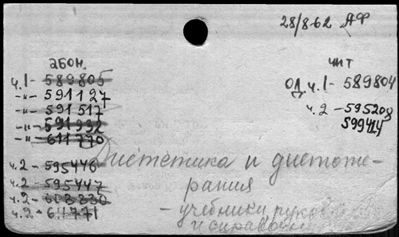 28/8-62 АФ
абон.
ч.1- 589805
-"- 591127
-"- 591517
-"- 591992
-"- 611770
ч.2- 595446
ч.2- 595447
ч.2-
ч.2- 61771
чит
ОД ч.1- 589804
ч.2 -595208
599414
Диететика и диетоте-
рапия
- учебники, руков
и справочн